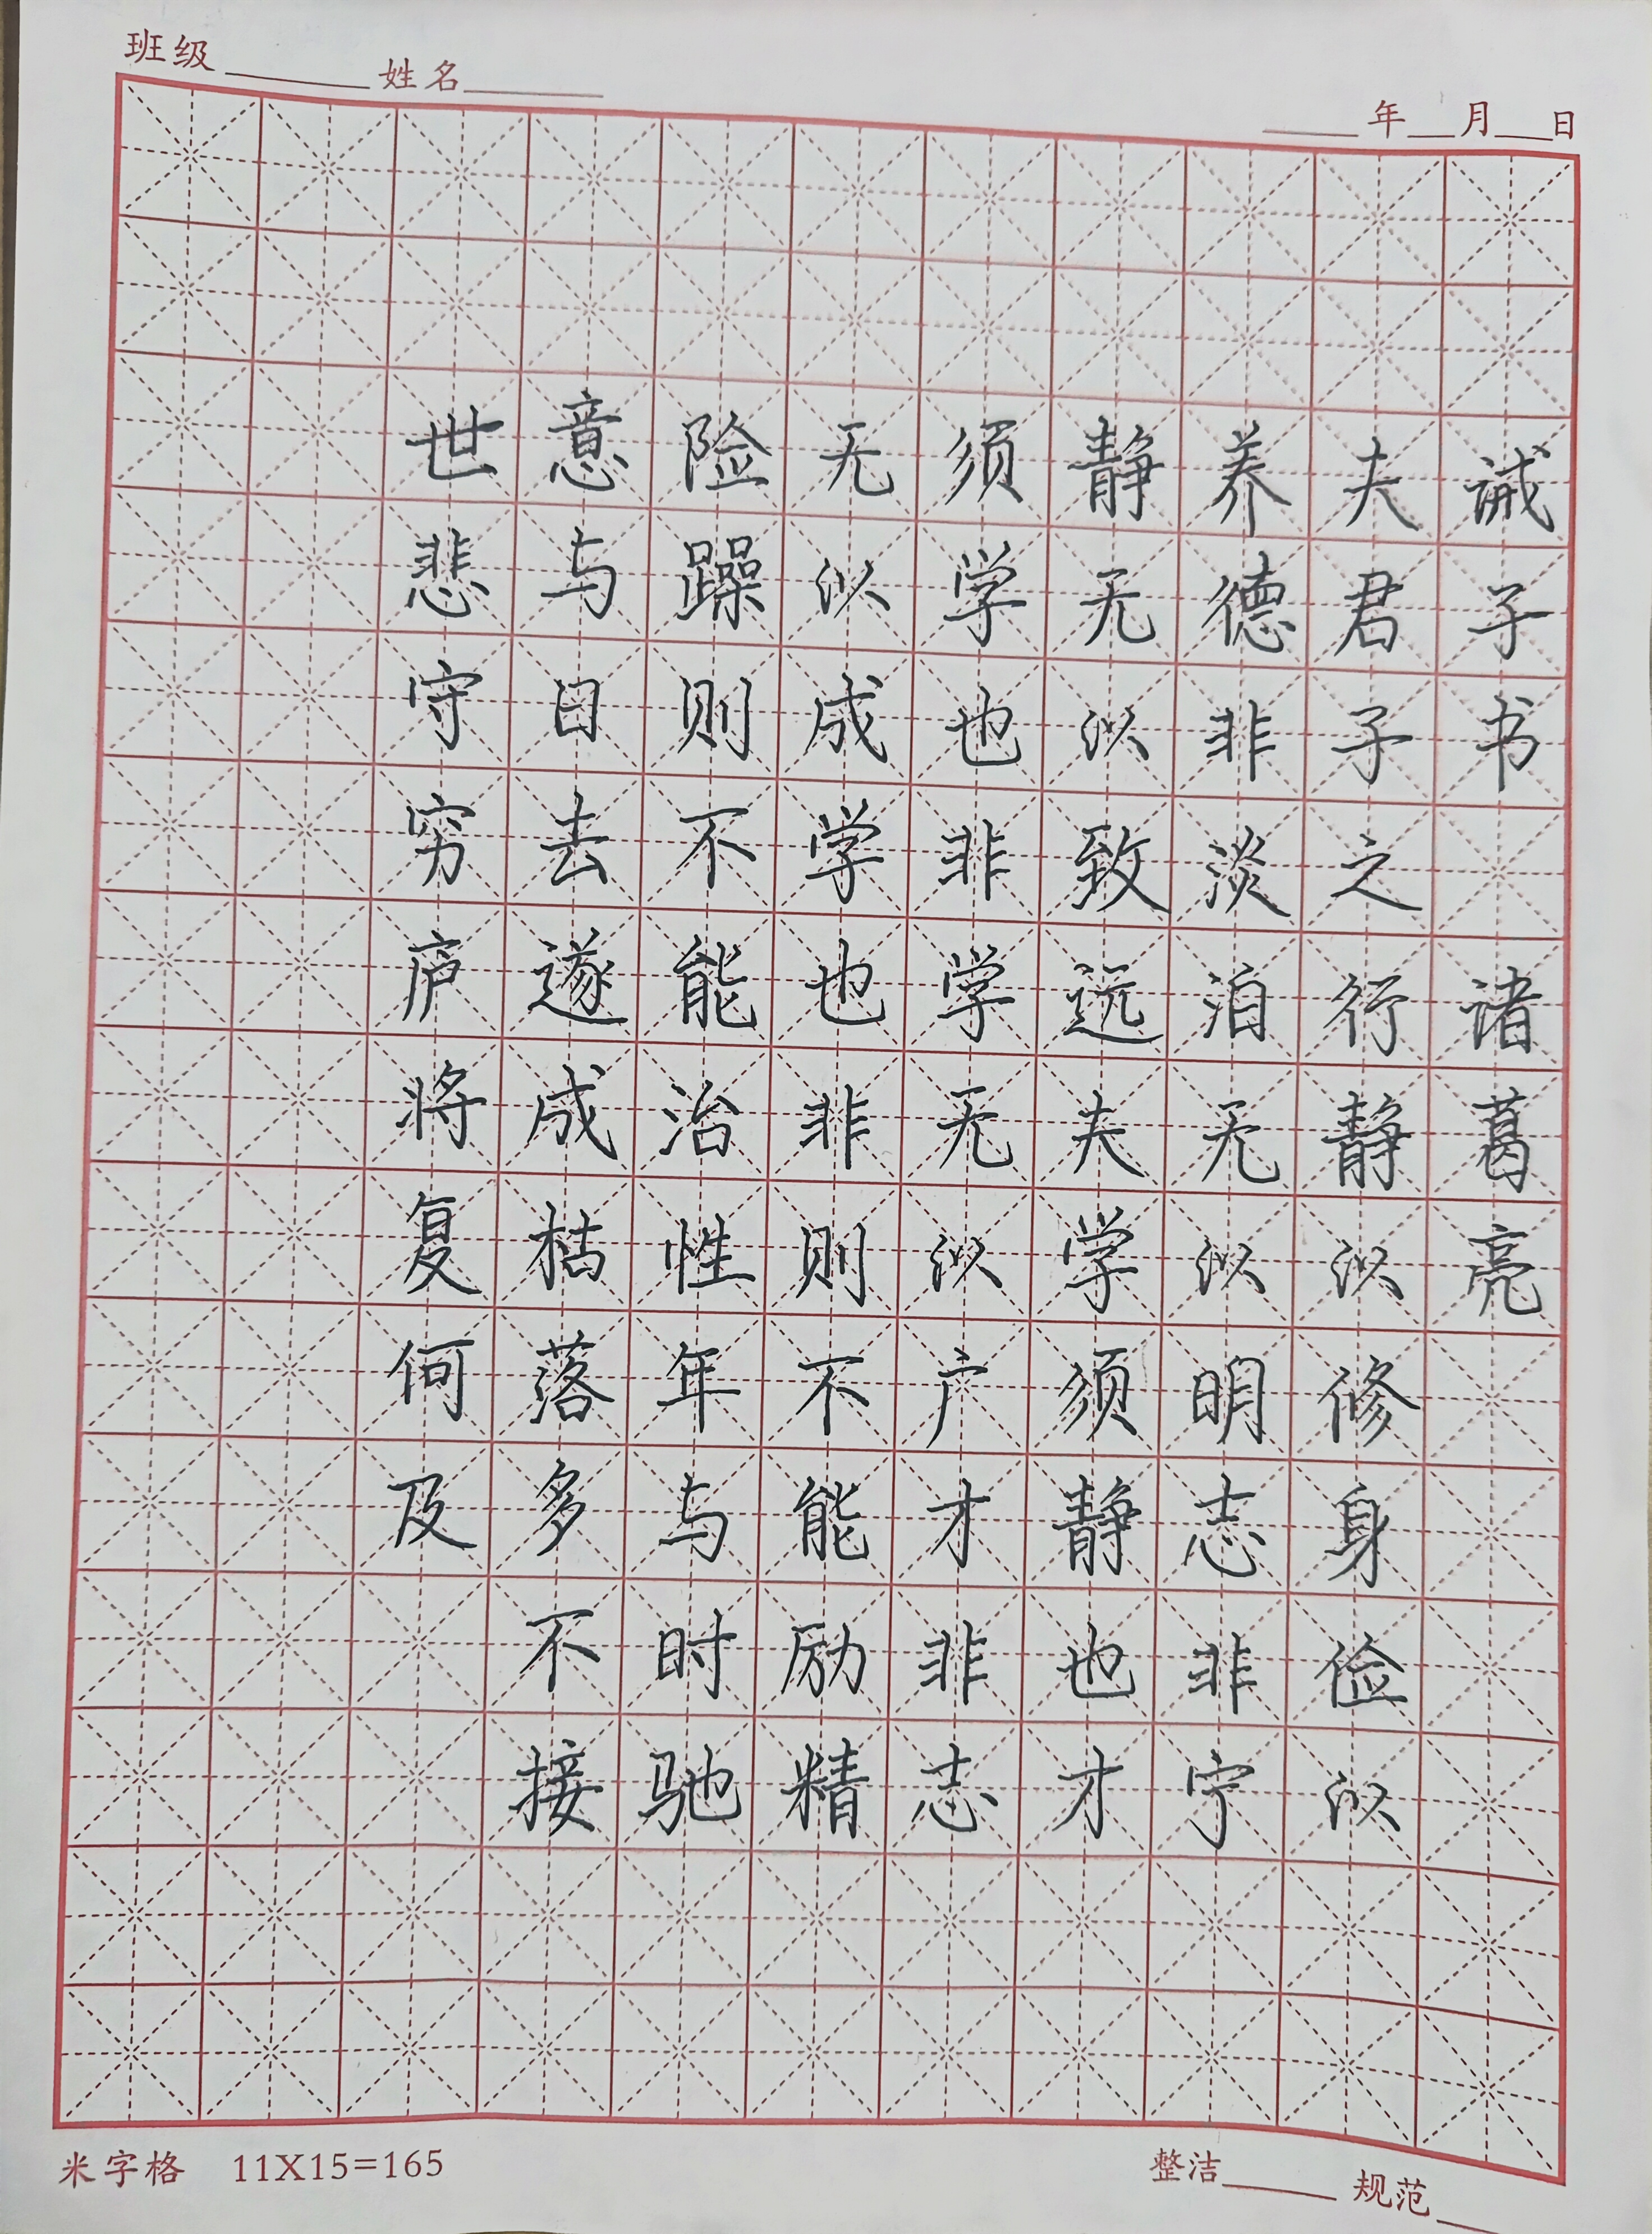 班级 姓名
年 月 日
诫子书 诸葛亮
夫君子之行静以修身俭以
养德非淡泊无以明志非宁
静无以致远夫学须静也才
须学也非学无以广才非志
无以成学也非则不能励精
险躁则不能治性年与时驰
意与日去遂成枯落多不接
世悲守穷庐将复何及
米字格 11X15=165
整洁 规范